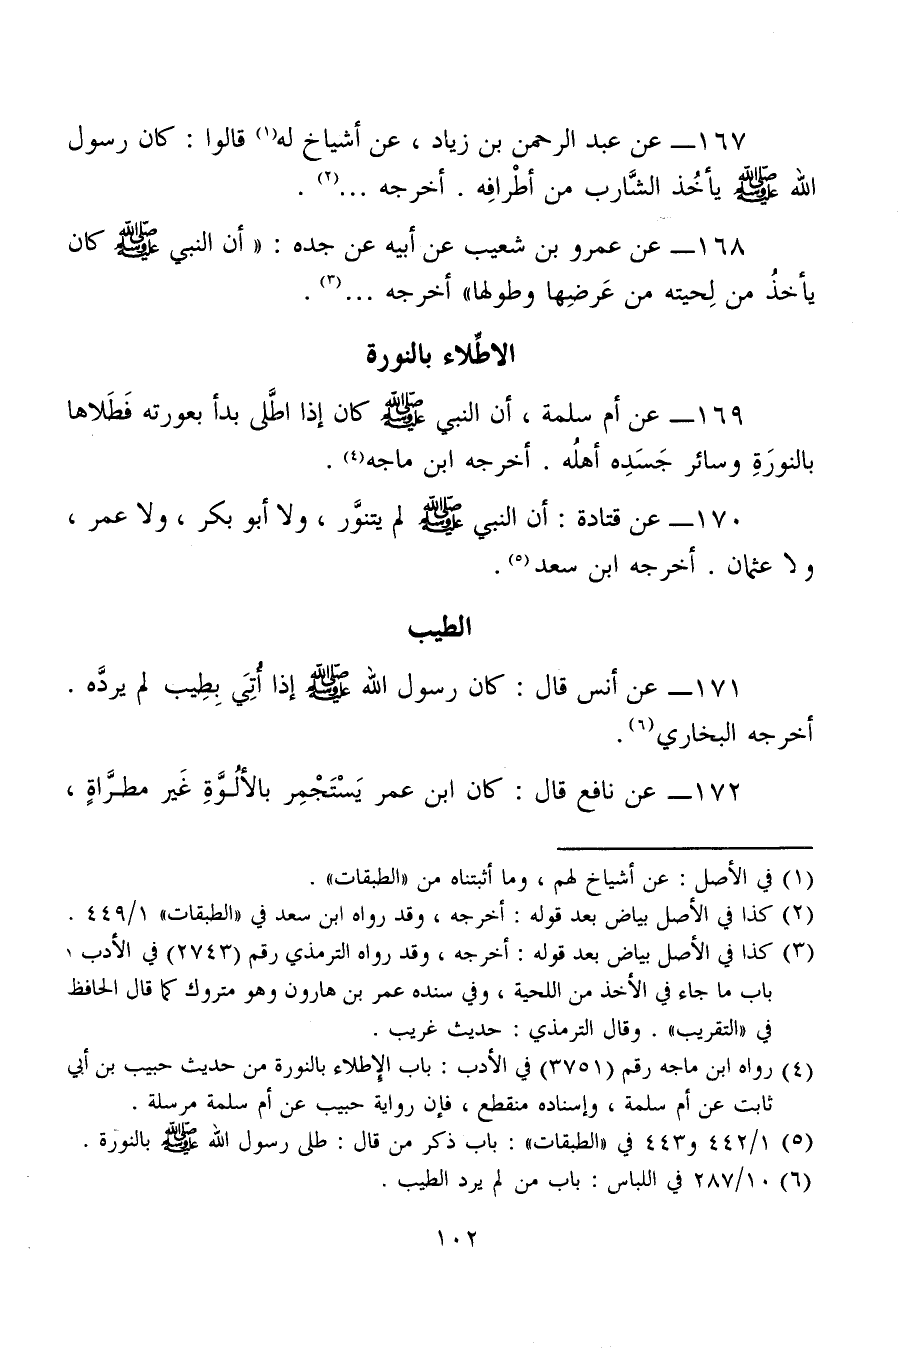 ١٦٧ــ عن عبد الرحمن بن زياد ، عن أشياخ له(١) قالوا : كان رسول
الله ﷺ يأخُذ الشَّارب من أطْرافِه . أخرجه ...(٢) .
١٦٨ــ عن عمرو بن شعيب عن أبيه عن جده : « أن النبي ﷺ كان
يأخذُ من لِحيته من عَرضِها وطولها» أخرجه ...(٣) .
الاطِّلاء بالنورة
١٦٩ــ عن أم سلمة ، أن النبي ﷺ كان إذا اطَّلى بدأ بعورته فَطَلاها
بالنورَةِ وسائر جَسَدِه أهلُه . أخرجه ابن ماجه(٤) .
١٧٠ــ عن قتادة : أن النبي ﷺ لم يتنوَّر ، ولا أبو بكر ، ولا عمر ،
ولا عثمان . أخرجه ابن سعد(٥) .
الطيب
١٧١ــ عن أنس قال : كان رسول الله ﷺ إذا أُتِيَ بِطِيب لم يردَّه .
أخرجه البخاري(٦) .
١٧٢ــ عن نافع قال : كان ابن عمر يَسْتَجْمِر بالأَلُوَّةِ غَير مطرَّاةٍ ،
(١) في الأصل : عن أشياخ لهم ، وما أثبتناه من «الطبقات» .
(٢) كذا في الأصل بياض بعد قوله : أخرجه ، وقد رواه ابن سعد في «الطبقات» ٤٤٩/١ .
(٣) كذا في الأصل بياض بعد قوله : أخرجه ، وقد رواه الترمذي رقم (٢٧٤٣) في الأدب ،
باب ما جاء في الأخذ من اللحية ، وفي سنده عمر بن هارون وهو متروك كما قال الحافظ
في «التقريب» . وقال الترمذي : حديث غريب .
(٤) رواه ابن ماجه رقم (٣٧٥١) في الأدب : باب الإطلاء بالنورة من حديث حبيب بن أبي
ثابت عن أم سلمة ، وإسناده منقطع ، فإن رواية حبيب عن أم سلمة مرسلة .
(٥) ٤٤٢/١ و٤٤٣ في «الطبقات» : باب ذكر من قال : طلى رسول الله ﷺ بالنورة .
(٦) ٢٨٧/١٠ في اللباس : باب من لم يرد الطيب .
١٠٢